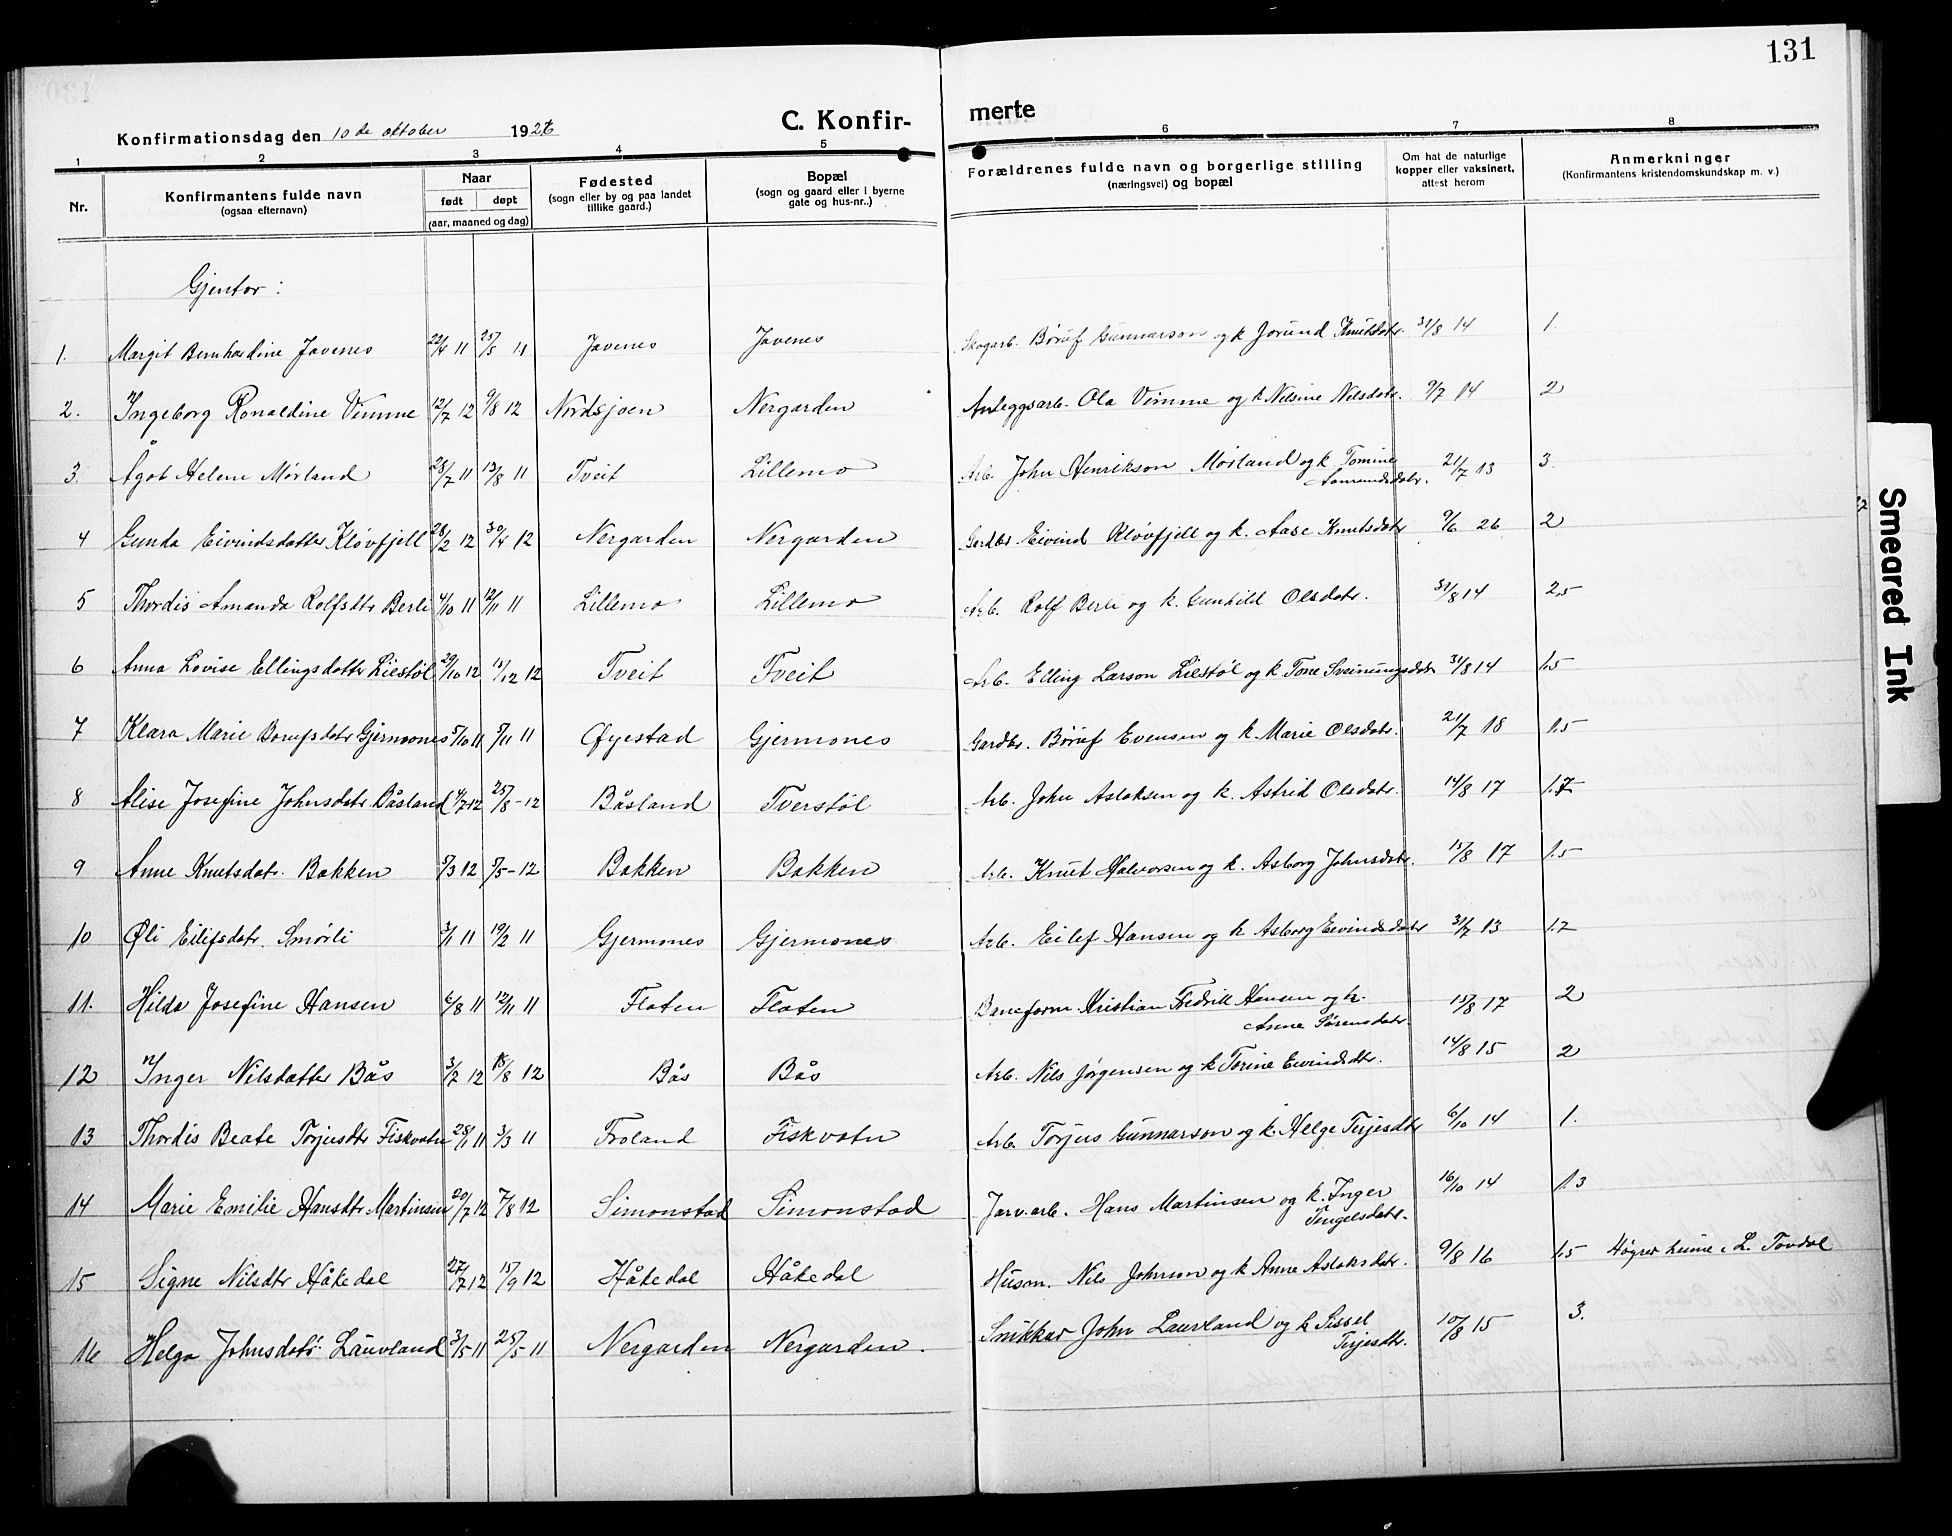 131
Konfirmationsdag den 10de oktober 1926
C. Konfir-
merte
1 2 3 4 5 6 7 8
Nr.
Konfirmantens fulde navn
(ogsaa efternavn)
Naar
født døpt
(aar, maaned og dag)
Fødested
(sogn eller by og paa landet
tillike gaard.)
Bopæl
(sogn og gaard eller i byerne
gate og hus-nr..)
Forældrenes fulde navn og borgerlige stilling
(næringsvei) og bopæl
Om hat de naturlige
kopper eller vaksinert,
attest herom
Anmerkninger
(Konfirmantens kristendomskundskap m. v.)
Gjentor:
1. Margit Bernhardine Javenes 22/4 11 25/5 11 Javenes Javenes Skogarb. Børuf Gunnarson og k Jorund Knutsdatr. 31/8 14 1.
2. Ingeborg Ronaldine Vimme 12/7 12 9/8 12 Nordsjoen Nergarden Anleggsarb. Ola Vimme og k Nilsine Nilsdatr. 9/7 14 2
3. Ågot Helene Mørland 28/7 11 13/8 11 Tveit Lillemo Arb. John Henrikson Mørland og k Tomine
Aamundsdatr. 21/7 13 3.
4 Gunda Eivindsdatter Kløvfjell 28/2 12 30/4 12 Nergarden Nergarden Gardbr. Eivind Kløvfjell og k. Aase Knutsdatr 9/6 26 2
5 Thordis Amanda Rolfsdtr Berli 4/10 11 12/11 11 Lillemo Lillemo Arb. Rolf Berli og k. Gunhild Olsdatr. 31/8 14 2,5
6 Anna Lovise Ellingsdattr Liestøl 29/10 12 15/12 12 Tveit Tveit Arb. Elling Larson Liestøl og k Tone Sveinungsdatr 31/8 14 1.5
7 Klara Marie Børufsdatr Gjermones 5/10 11 5/11 11 Øyestad Gjermones Gardbr. Børuf Evensen og k. Marie Olsdatr. 21/7 18 1.5
8 Alise Josefine Johnsdatr Båsland 4/7 12 25/8-12 Båsland Tverstøl Arb. John Aslaksen og k. Astrid Olsdatr. 14/8 17 1.7
9 Anne Knutsdatr. Bakken 5/3 12 5/5-12 Bakken Bakken Arb. Knut Halvorsen og k. Asborg Johnsdatr. 15/8 17 1.5
10 Øli Eilifsdatr. Smørli 3/1 11 19/2 11 Gjermones Gjermones Arb. Eilef Hansen og k Asborg Eivindsdatr 31/7 13 1.7
11. Hilda Josefine Hansen 6/8 11 12/11 11 Flaten Flaten Baneform. Kristian Fredrik Hansen og k.
Anne Sørensdatr. 15/8 17 2
12 Inger Nilsdatter Bås 3/7 12 18/8 12 Bås Bås Arb. Nils Jørgensen og k Torine Eivindsdtr. 14/8 15 2
13 Thordis Beate Torjusdtr Fiskvatn 28/1 11 3/3 11 Froland Fiskvatn Arb. Torjus Gunnarson og k. Helge Terjesdtr 6/10 14 1.
14 Marie Emilie Hansdtr Martinsen 20/7 12 7/8 12 Simonstad Simonstad Jarv.arb. Hans Martinsen og k. Inger
Tengelsdatr. 16/10 14 1.3
15 Signe Nilsdtr Håkedal 27/7 12 15/9 12 Håkedal Håkedal Husm. Nils Johnson og k Anne Aslaksdatr. 9/8 16 1.5 Høgrer heime i L. Tovdal
16 Helga Johnsdatr. Lauvland 3/5 11 25/5 11 Nergarden Nergarden. Snikkar John Lauvland og k Sissel
Terjesdtr. 10/8 15 3.
Smeared Ink